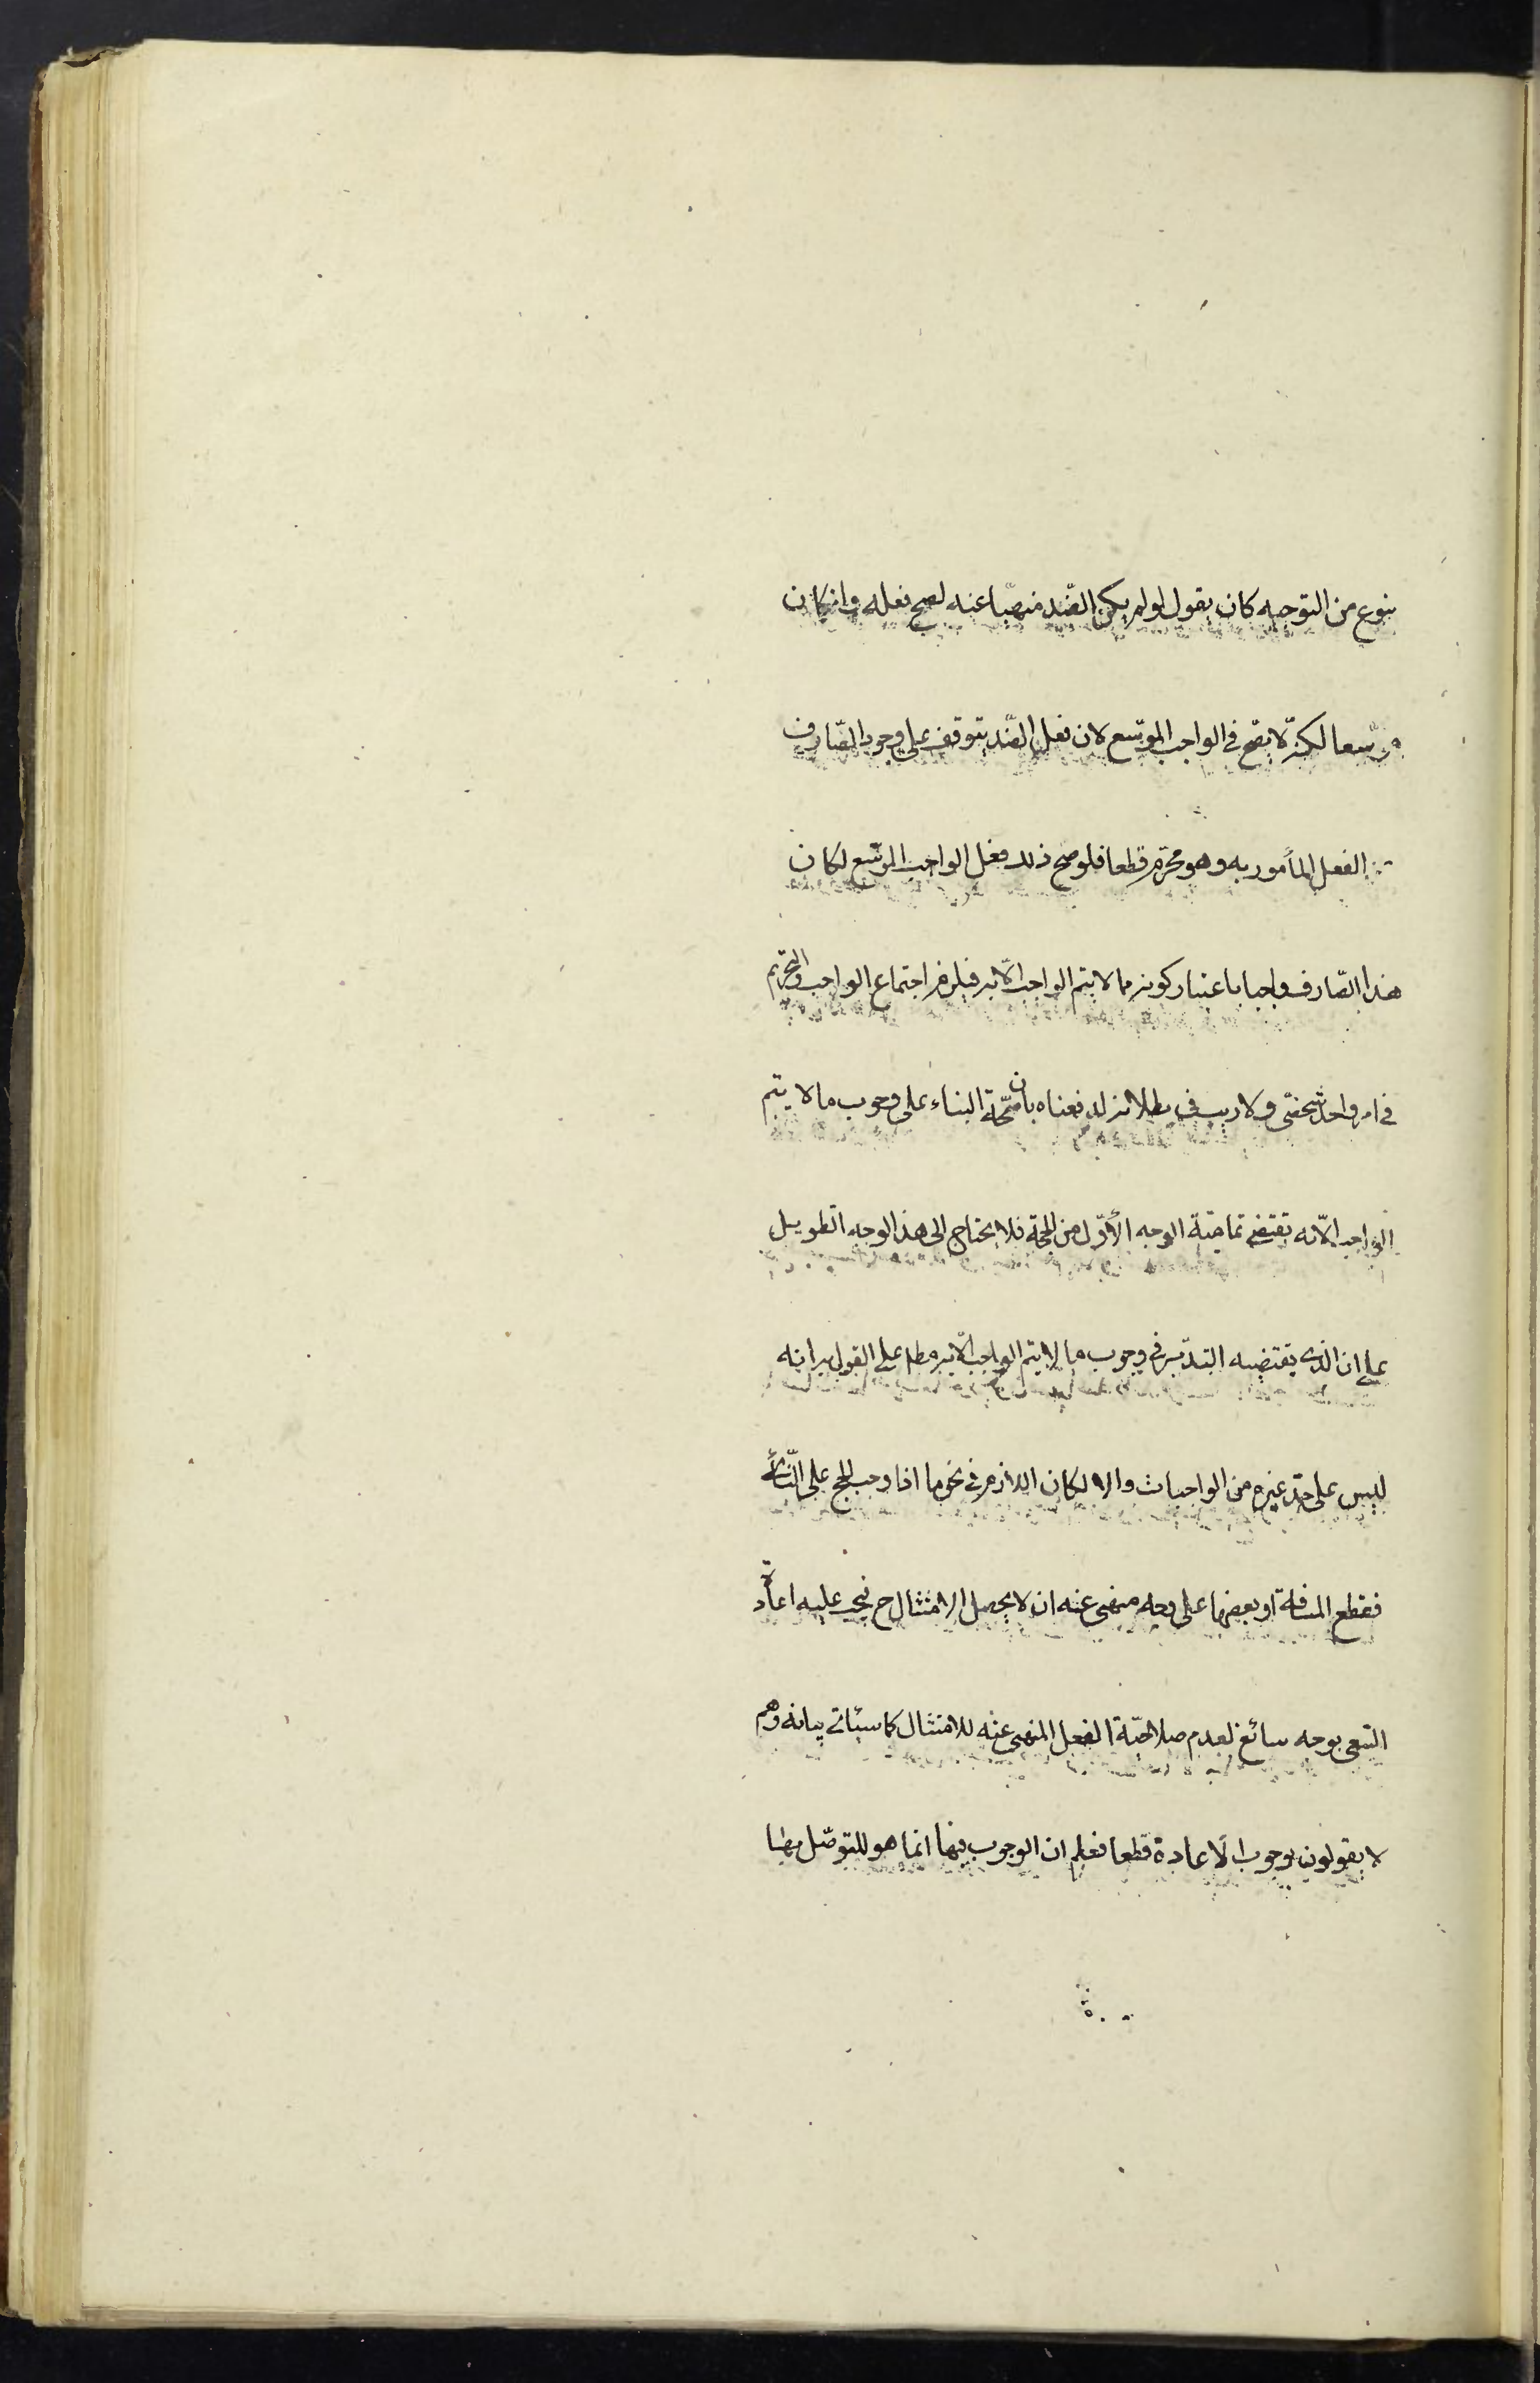 بنوع من التوجيه كان يقول لو لم يكن الضّد منهيّا عنه لصحّ فعله وانكان
موسّعا لكنّه لا يصّح في الواجب الموسّع لان فعل الضّد يتوقف على وجود الصّارف
عن الفعل المأمور به وهو محرّم قطعا فلو صح ذلك فعل الواجب الموسّع لكان
هذا الصّارف واجبا باعتبار كونه مما لا يتم الواجب الّا به فيلزم اجتماع الواجب والتحريم
في امر واحد شخصّى ولا ريب في بطلانه لدفعناه بان صحّة البناء على وجوب ما لا يتم
الواجب الّا به تقتضي تماميّة الوجه الأوّل من الحجّة فلا يحتاج الى هذا الوجه الطويل
على ان الذى يقتضيه التدبّر في وجوب ما لا يتم الواجب الّا به مطلـ على القول به انه
ليس على حدّ غيره من الواجبات والا لكان اللازم في نحو ما اذا وجب الحج على النّائى
فقطع المسافة او بعضها على وجه منهى عنه ان لا يحصل الامتثال ح فيجب عليه اعادة
السّعى بوجه سائغ لعدم صلاحيّة الفعل المنهى عنه للامتثال كما سيأتى بيانه وهم
لا يقولون بوجوب الاعادة قطعا فعلم ان الوجوب فيها انما هو للتوصّل بها